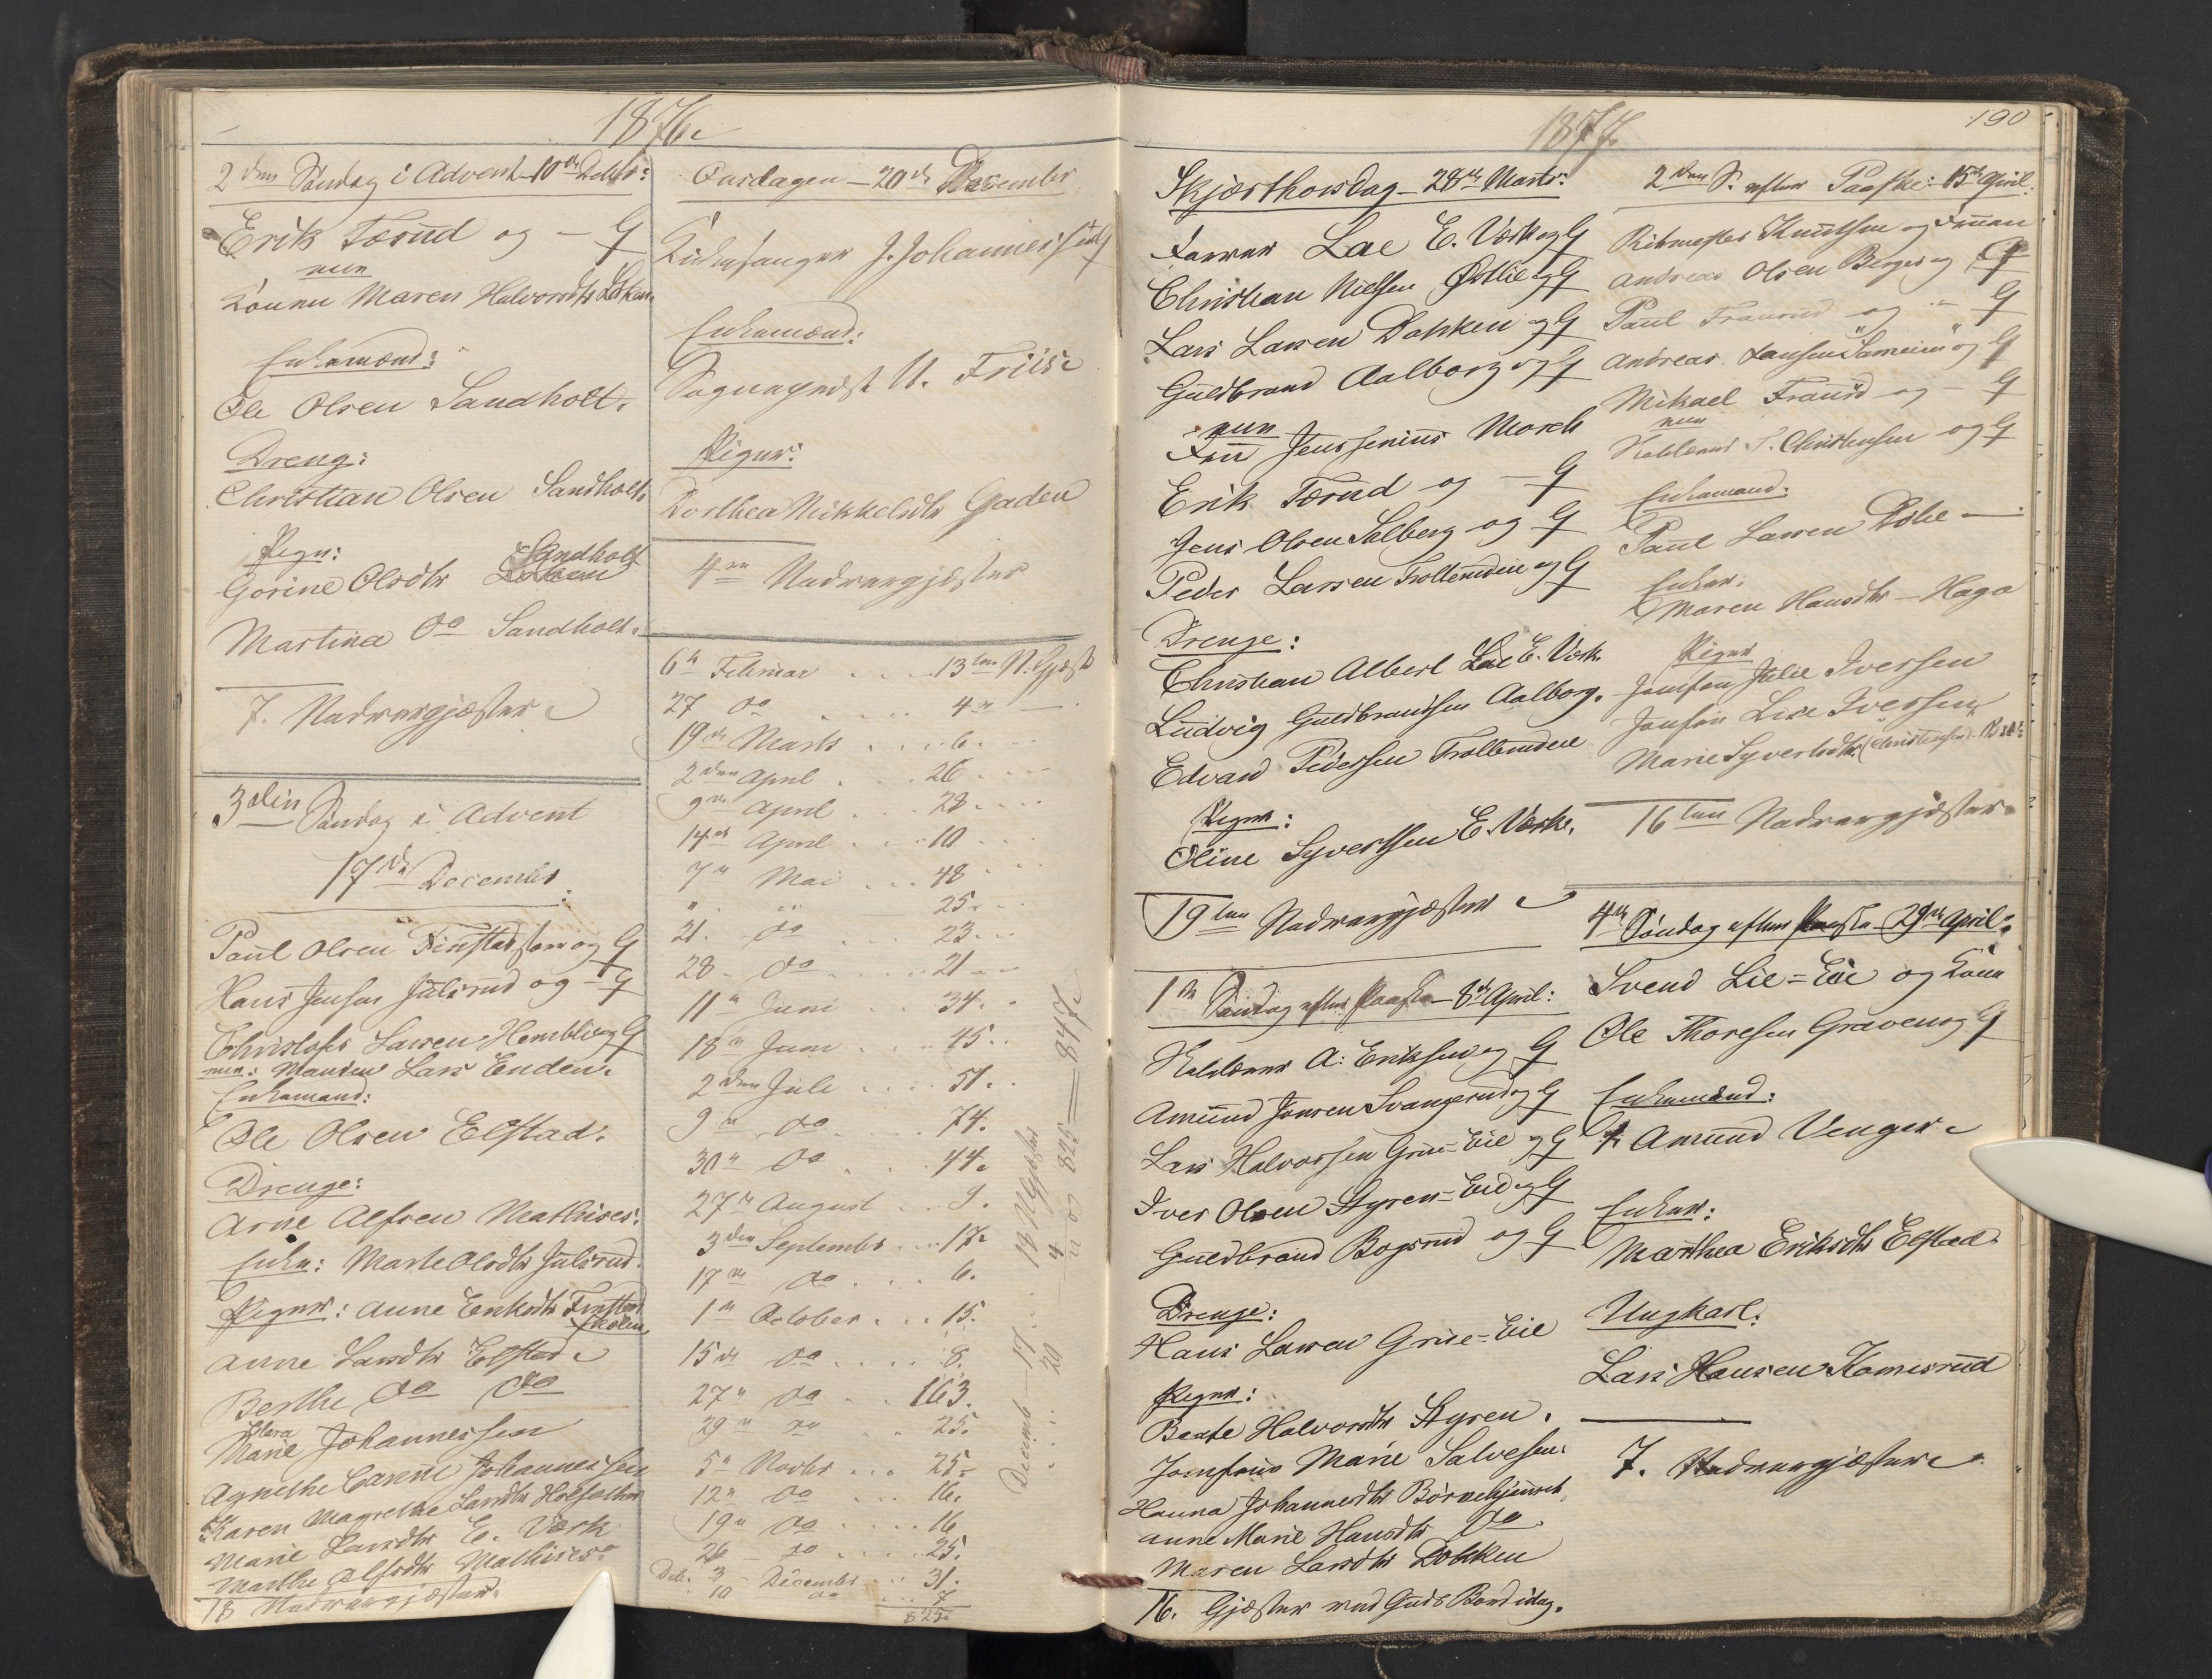 1876.
2den Søndag i Advent 10de Decbr:
Erik Tærud og – G
nem
Konen Maren Halvorsdtr Løken
Enkemænd:
Ole Olsen Sandholt.
Dreng:
Christian Olsen Sandholt
Piger:
Sandholt
Gorine Olsdtr
Martina do Sandholt.
7. Nadvergjæster
3die Søndag i Advent
17de December
Paul Olsen og G
Hans Jensen Julsrud og – G
Christofer Larsen Hemblie og G
nem: Manden Lars Enden.
Enkemand:
Ole Olsen Elstad.
Drenge:
Arne Alfsen Mathises.
Enke: Marte Olsdtr Julsrud.
Piger: Anne Eriksdtr Finstad
Anne Larsdtr Elstad
Berthe do do
Clara
Marie Johannessen
Agnethe Johannessen
Karen Magrethe Larsdtr
Marie Larsdtr E. Værk
Marthe Alfsdtr Mathises.
18 Nadvergjæster.
Onsdagen – 20de December
Kirkesanger J. Johannessen G
Enkemænd:
Sogneprest N. Friis
Piger:
Dorthea Mikkelsdtr Gaden
4re Nadvergjæster
6te Februar . . . 13ten N. Gjæst
27 do . . . 4re —
19de Marts . . . 6.
2den April . 26
9de April . . 28
14de April . . . 10
7de Mai . . . 48
" " 25.
21. do . . 23
28 – do . . . 21
11te Juni . . 34.
18de Juni . . . 45.
2den Juli . . . 51.
9de do . . 74.
30te do . . . 44.
27de August . . 9.
3die September . . . 17.
17de do . . . 6.
1ste October . . . 15.
15de do . . . 8.
27de do . . 163.
29de do . . 25.
5te Novbr . . . 25.
12te do . . . 16.
19de do . . . 16
26 do . . . 25.
Decbr. 3 – December . . . 31.
10 do . . . 7
825
Decemb – 17 . . . 18 N Gjæster
20 . . . 4
825 = 847.
190
1877.
Skjærthorsdag – 28de Marts:
Farver Lae E. Værk og G
Christian Nielsen Østlie og G
Lars Larsen Dokken og G
Guldbrand Aalborg og G
nem
Fru Jenssenius Morch
Erik Tærud og – G
Jens Olsen Solberg og G
Peder Larsen Trollerudeie og G
Drenge:
Christian Albert Lae E. Værk.
Ludvig Guldbrandsen Aalborg.
Edvard Pedersen Trollerudeie
Piger:
Oline Syvertsen E. Værke.
19ten Nadvergjæster
1ste Søndag efter Paaske – 8de April:
A: Eriksen og G
Amund Jonsen Svangerud og G
Lars Halvorsen Grue-Eie og G
Iver Olsen Styren-Eie og G
Guldbrand Bogsrud og G
Drenge:
Hans Larsen Grue-Eie
Piger:
Beate Halvorsdtr Styren.
Jomfrue Marie Salvesen
Hanna Johannesdtr Børnehjemmet
Anne Marie Hansdtr do.
Maren Larsdtr Dokken
16. Gjæster ved Guds Bord idag.
2den S. efter Paaske: 15de April.
Ritmester Knutsen og Fruen
Andreas Olsen Berger og G
Paul Traurud og – G
Andreas Larsen og G
Mikael Traurud og G
nem
Christensen og G
Enkemand:
Paul Larsen Dølie —
Enker:
Maren Hansdtr – Haga
Piger
Jomfru Julie Iversen
Jomfru Lise Iversen
Marie Syvertsdtr (Christensen)
16ten Nadvergjæster
4de Søndag efter Paaske 29de April.
Svend Lie-Eie og Kone
Ole Thoresen Graven og G
Enkemænd:
Amund Venger
Enker:
Marthea Eriksdtr Elstad.
Ungkarl:
Lars Hansen Komisrud
7. Nadvergjæster